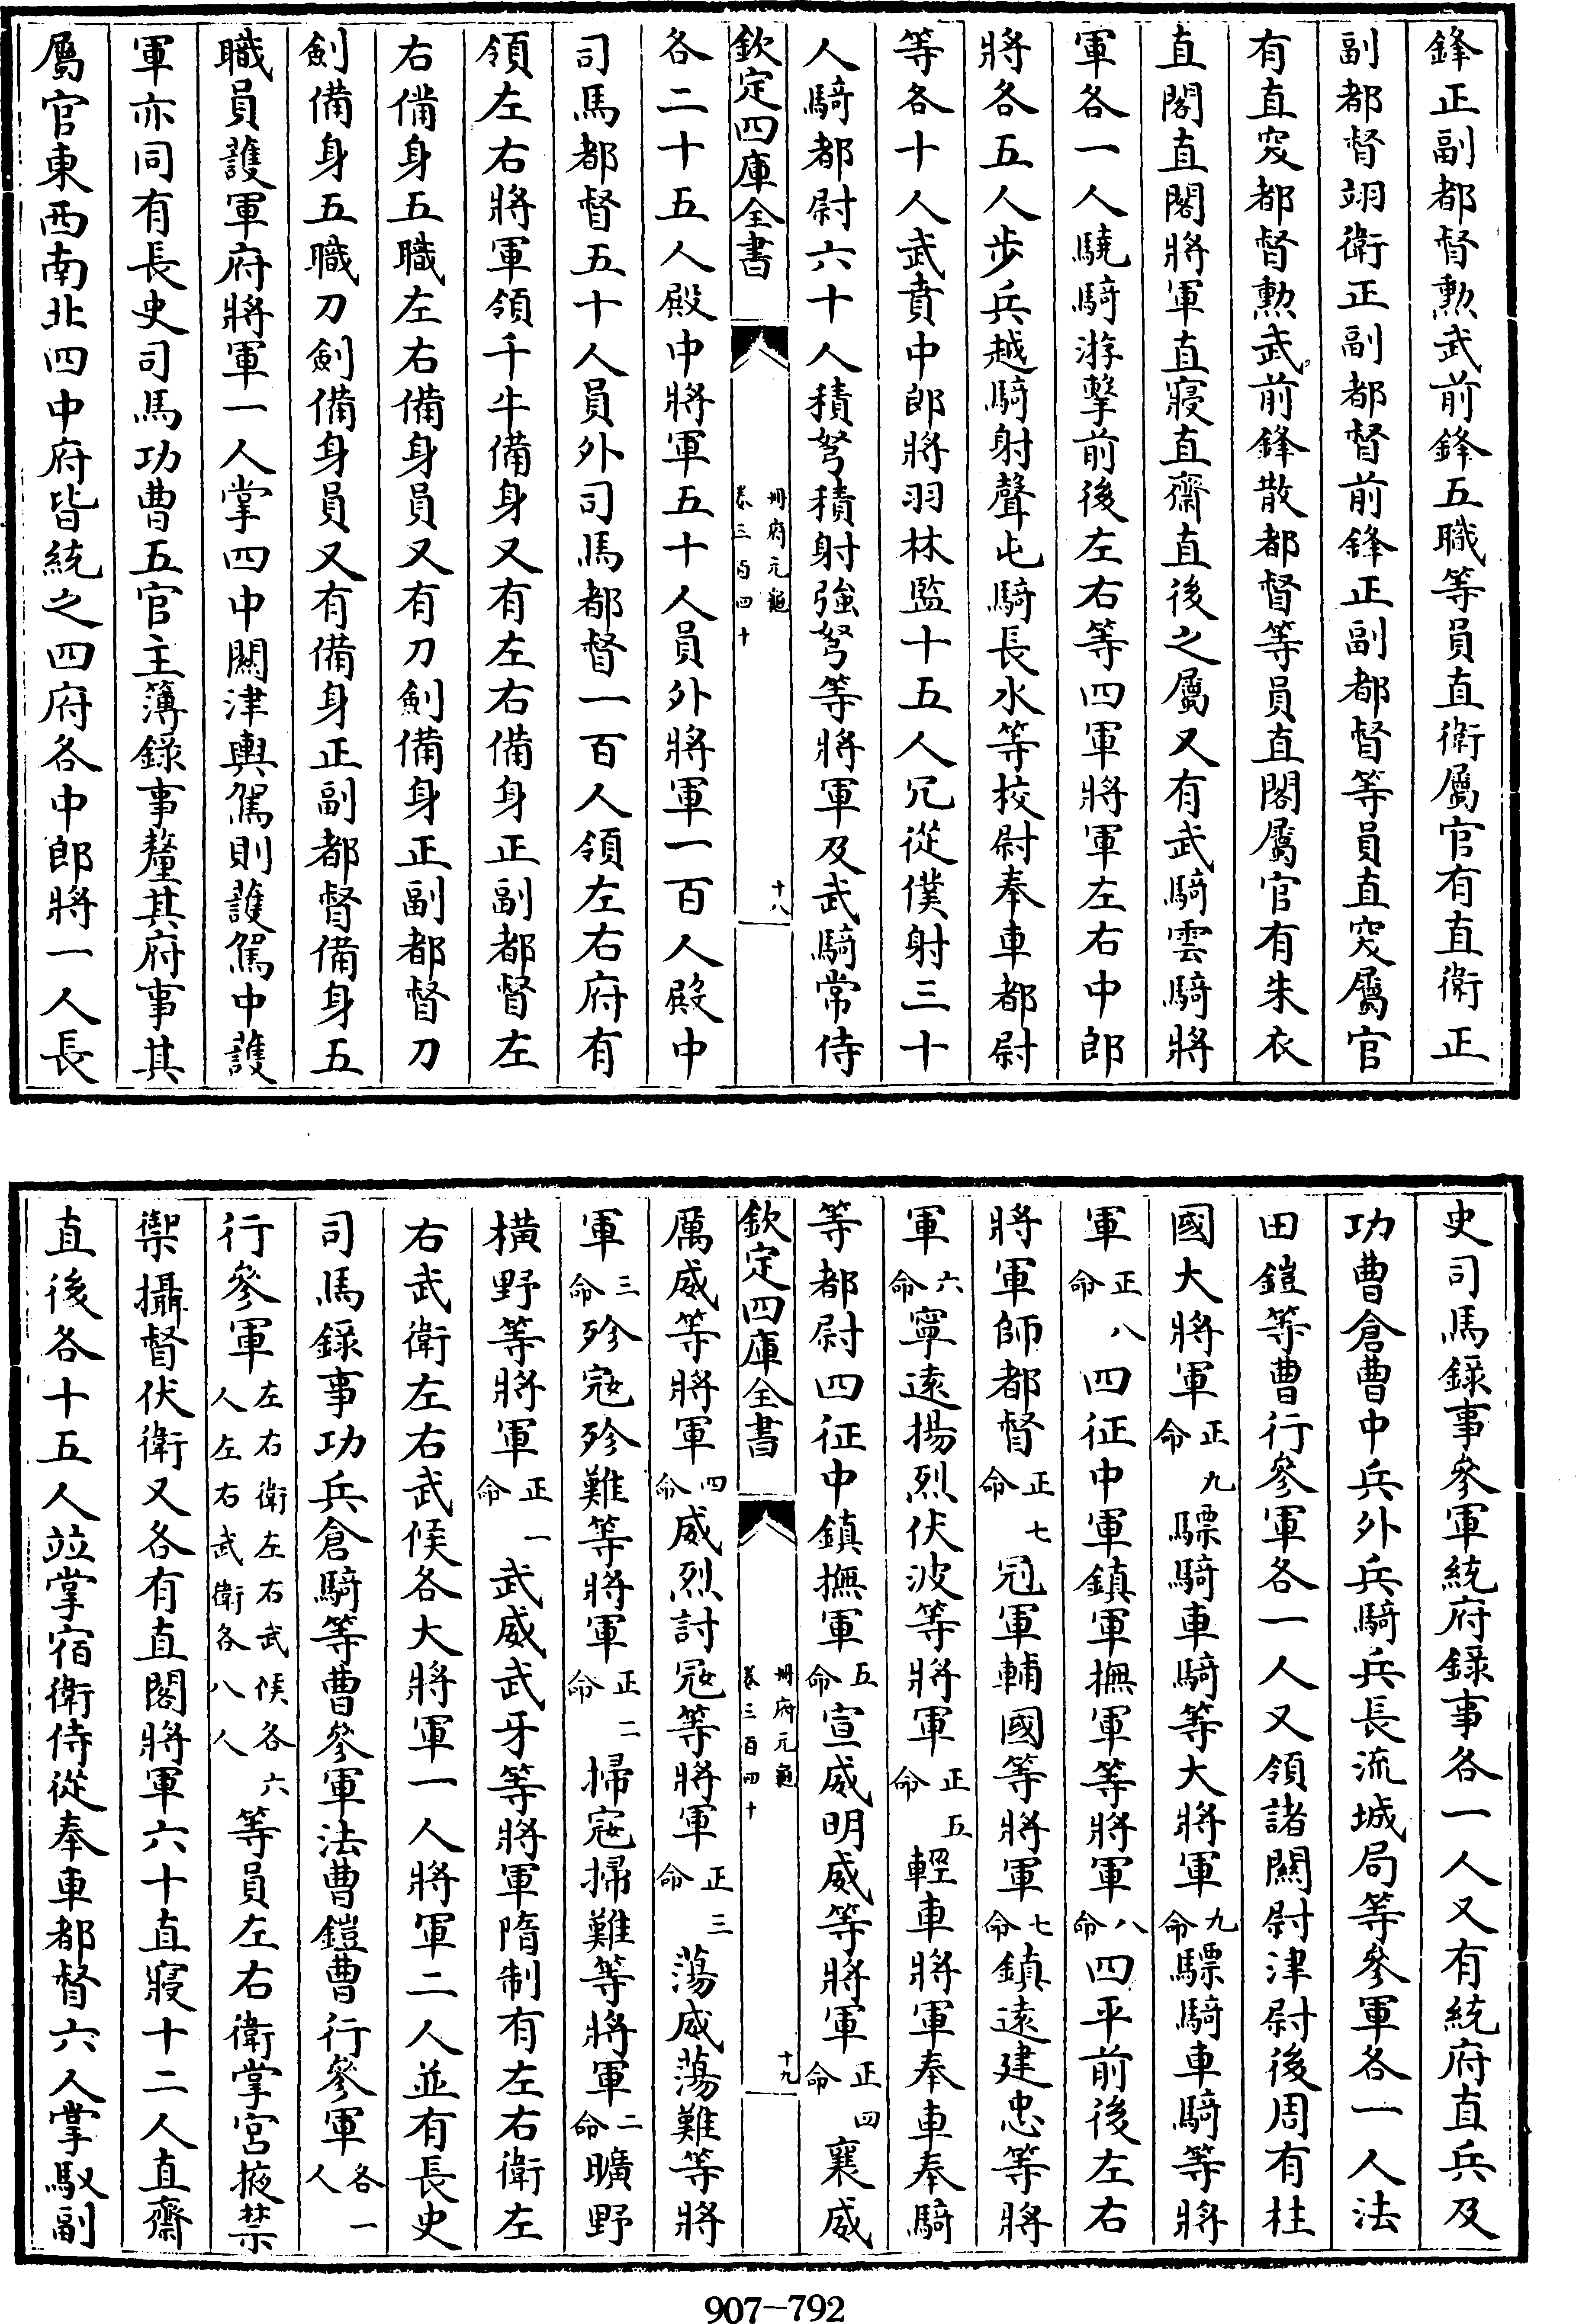 鋒正副都督勲武前鋒五職等員直衛屬官有直衛正
副都督翊衛正副都督前鋒正副都督等員直突屬官
有直突都督勲武前鋒散都督等員直閤屬官有朱衣
直閤直閤將軍直寢直齋直後之屬又有武騎雲騎將
軍各一人驍騎游擊前後左右等四軍將軍左右中郎
將各五人步兵越騎射聲屯騎長水等校尉奉車都尉
等各十人武賁中郎將羽林監十五人冗從僕射三十
人騎都尉六十人積弩積射強弩等將軍及武騎常侍
欽定四庫全書
冊府元龜
卷三百四十
十八
各二十五人殿中將軍五十人員外將軍一百人殿中
司馬都督五十人員外司馬都督一百人領左右府有
領左右將軍領千牛備身又有左右備身正副都督左
右備身五職左右備身員又有刀劍備身正副都督刀
劍備身五職刀劍備身員又有備身正副都督備身五
職員護軍府將軍一人掌四中關津輿駕則護駕中護
軍亦同有長史司馬功曹五官主簿錄事釐其府事其
屬官東西南北四中府皆統之四府各中郎將一人長
史司馬錄事參軍統府錄事各一人又有統府直兵及
功曹倉曹中兵外兵騎兵長流城局等參軍各一人法
田鎧等曹行參軍各一人又領諸關尉津尉後周有柱
國大將軍正九命驃騎車騎等大將軍九命驃騎車騎等將
軍正八命四征中軍鎮軍撫軍等將軍八命四平前後左右
將軍師都督正七命冠軍輔國等將軍七命鎮遠建忠等將
軍六命寧遠揚烈伏波等將軍正五命輕車將軍奉車奉騎
等都尉四征中鎮撫軍五命宣威明威等將軍正四命襄威
欽定四庫全書
冊府元龜
卷三百四十
十九
厲威等將軍四命威烈討冦等將軍正三命蕩威蕩難等將
軍三命殄寇殄難等將軍正二命掃寇掃難等將軍二命曠野
橫野等將軍正一命武威武牙等將軍隋制有左右衛左
右武衛左右武候各大將軍一人將軍二人並有長史
司馬錄事功兵倉騎等曹參軍法曹鎧曹行參軍各一人
行參軍左右衛左右武候各六人左右武衛各八人等員左右衛掌宮掖禁
禦攝督伏衛又各有直閤將軍六十直寢十二人直齋
直後各十五人竝掌宿衛侍從奉車都督六人掌馭副
907-792